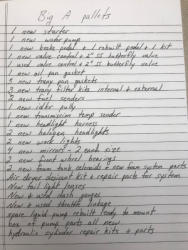 Big A pallets
1 new starter
1 new water pump
1 new brake pedal + 1 rebuilt pedal + 1 kit
1 new valve control + 2" SS butterfly valve
1 used valve control + 2" SS butterfly valve
1 new oil pan gasket
3 new trany pan gaskets
3 new trany filter kits internal + external
2 new fuel senders
1 new idler pully
1 new transmission temp sender
1 new headlight harness
2 new halogen headlights
2 new work lights
4 new mirrors - 2 each size
2 new front wheel bearings
2 new foam tank rebuilds + new foam system parts
air driver deviant kit + repair parts for system
New tail light lenses
New & used dash gauges
New & used throttle linkage
spare liquid pump rebuilt ready to mount
box of pump parts all new
hydraulic cylinder repair kits + parts